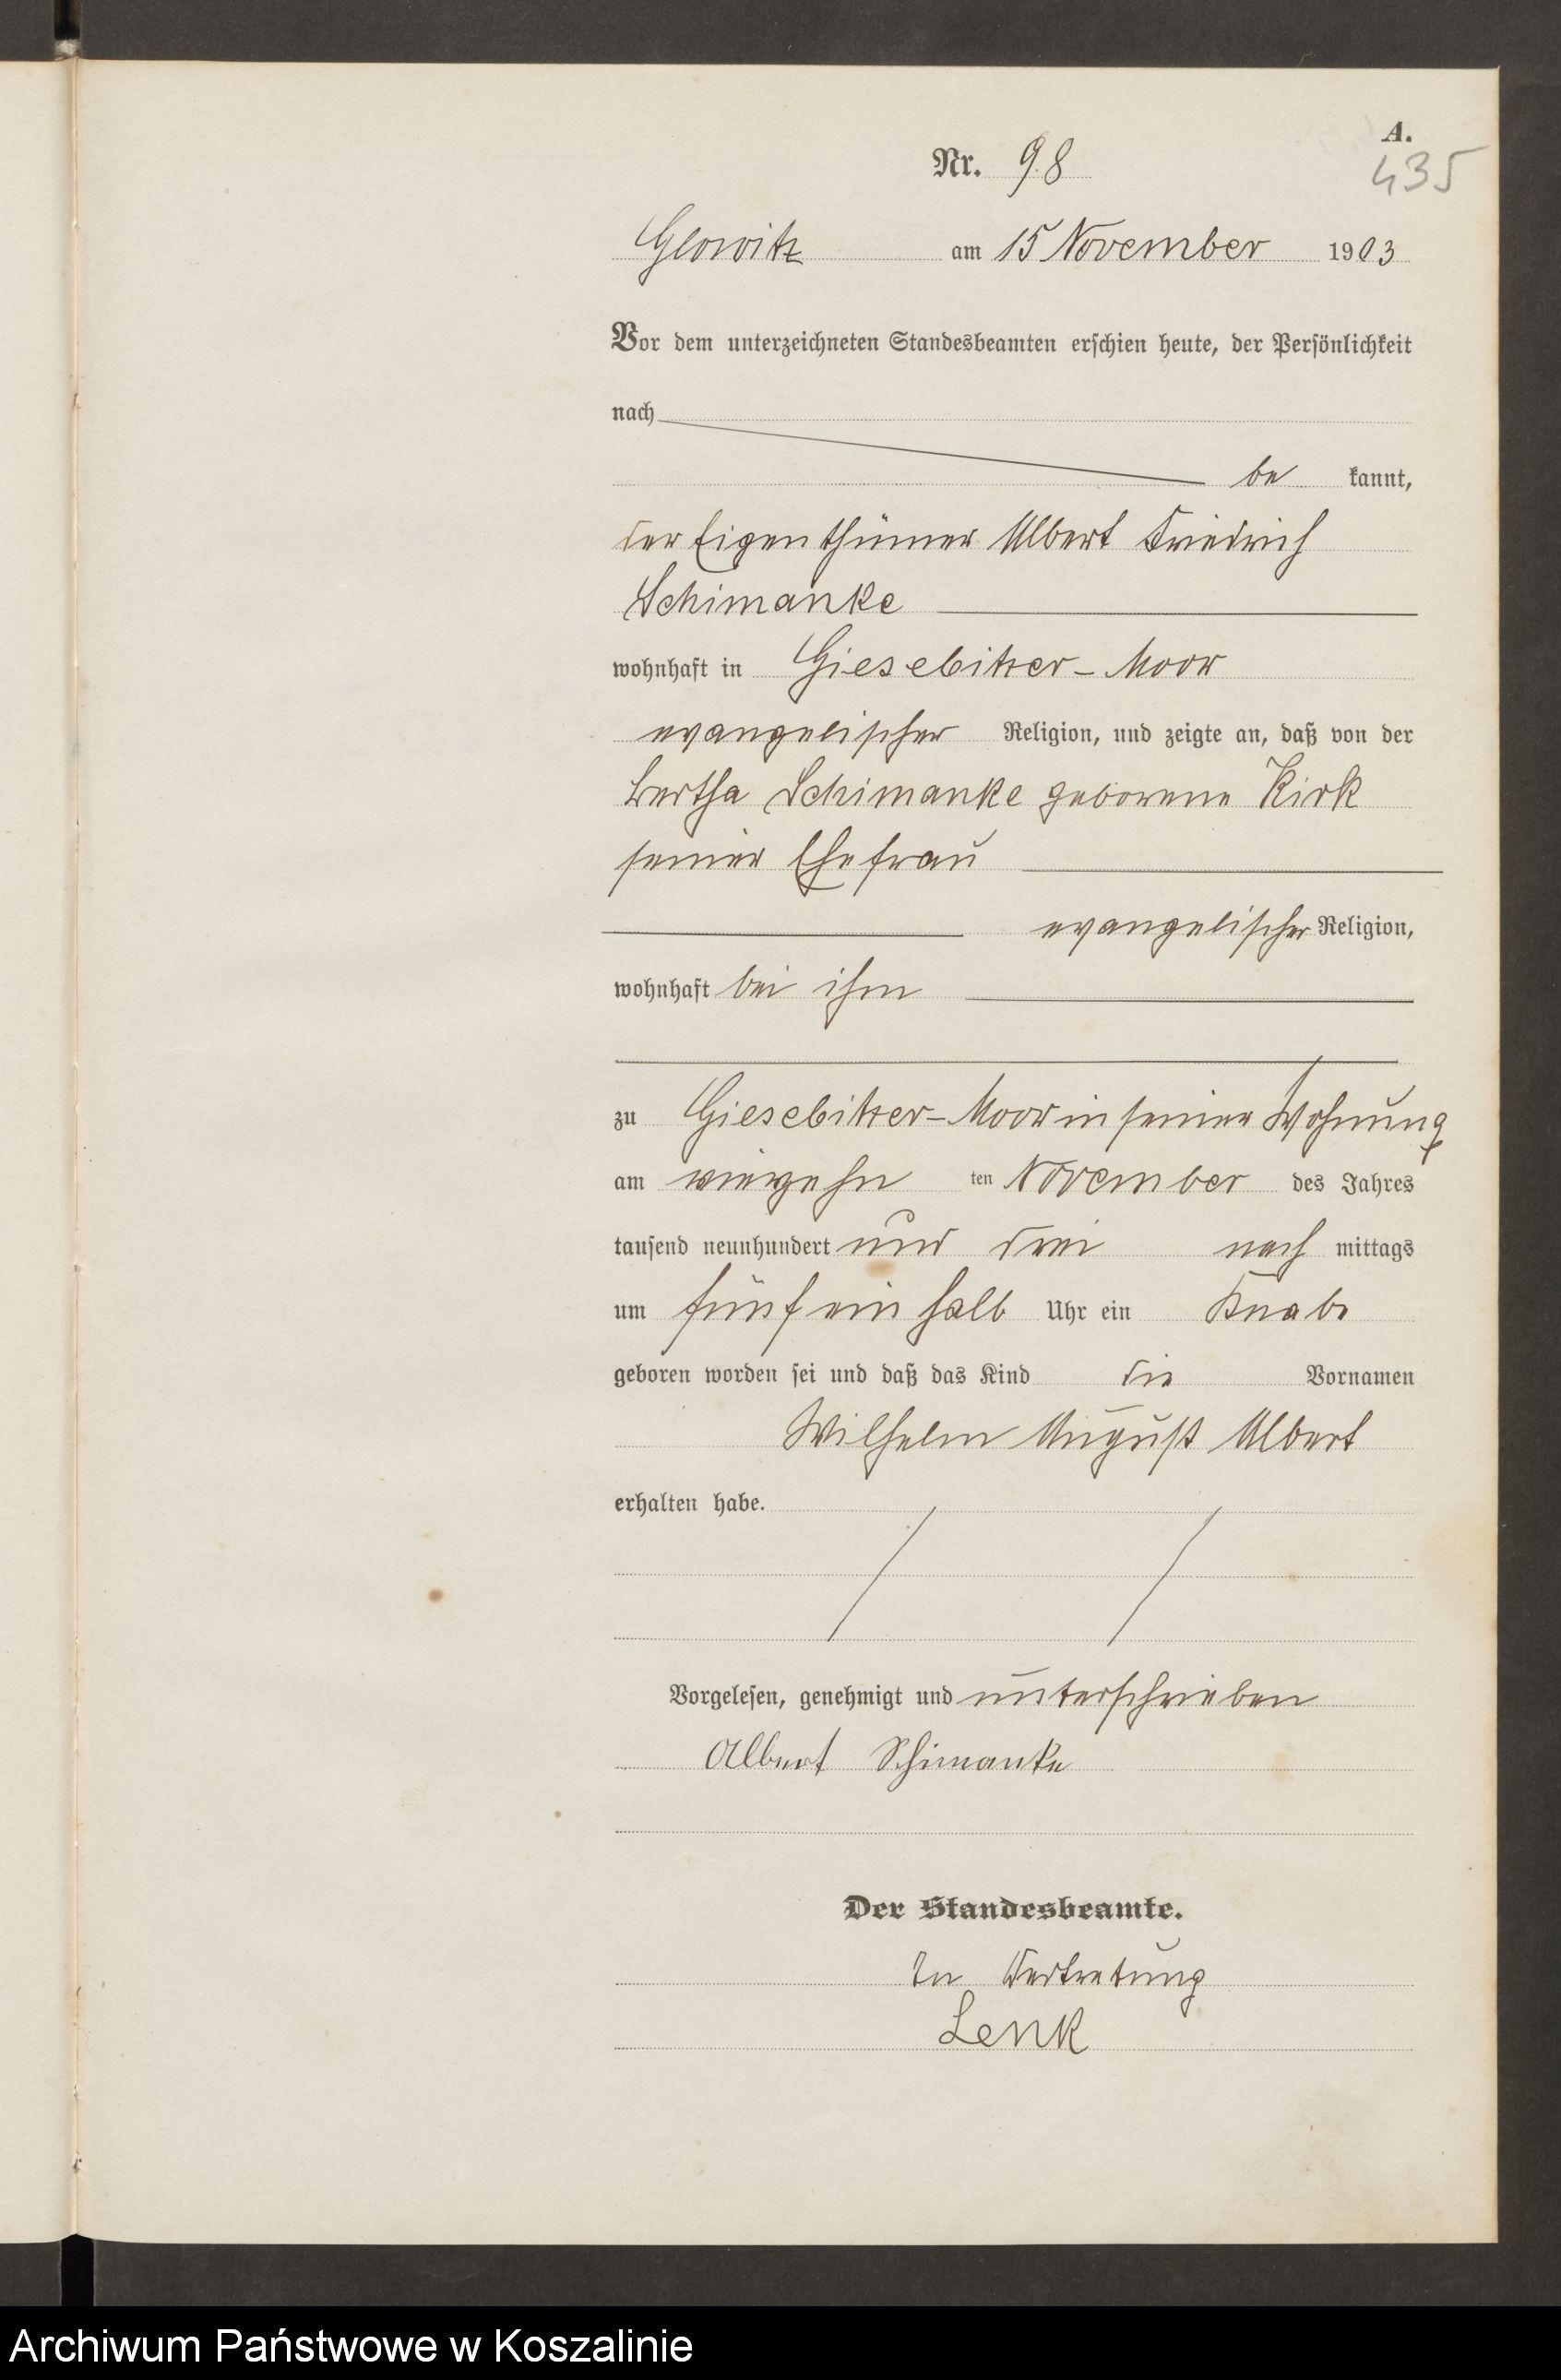 A.
Nr. 98
435
Glowitz am 15 November 1903
Vor dem unterzeichneten Standesbeamten erschien heute, der Persönlichkeit
nach
be kannt,
der Eigenthümer Albert Friedrich
Schimanke
wohnhaft in Giesebitzer-Moor
evangelischer Religion, und zeigte an, daß von der
Bertha Schimanke geborene Kirk
seiner Ehefrau
evangelischer Religion,
wohnhaft bei ihm
zu Giesebitzer-Moor in seiner Wohnung
am vierzehn ten November des Jahres
tausend neunhundert und drei nach mittags
um fünf ein halb Uhr ein Knabe
geboren worden sei und daß das Kind die Vornamen
Wilhelm August Albert
erhalten habe.
Vorgelesen, genehmigt und unterschrieben
Albert Schimanke
Der Standesbeamte.
In Vertretung
Lenk
Archiwum Państwowe w Koszalinie